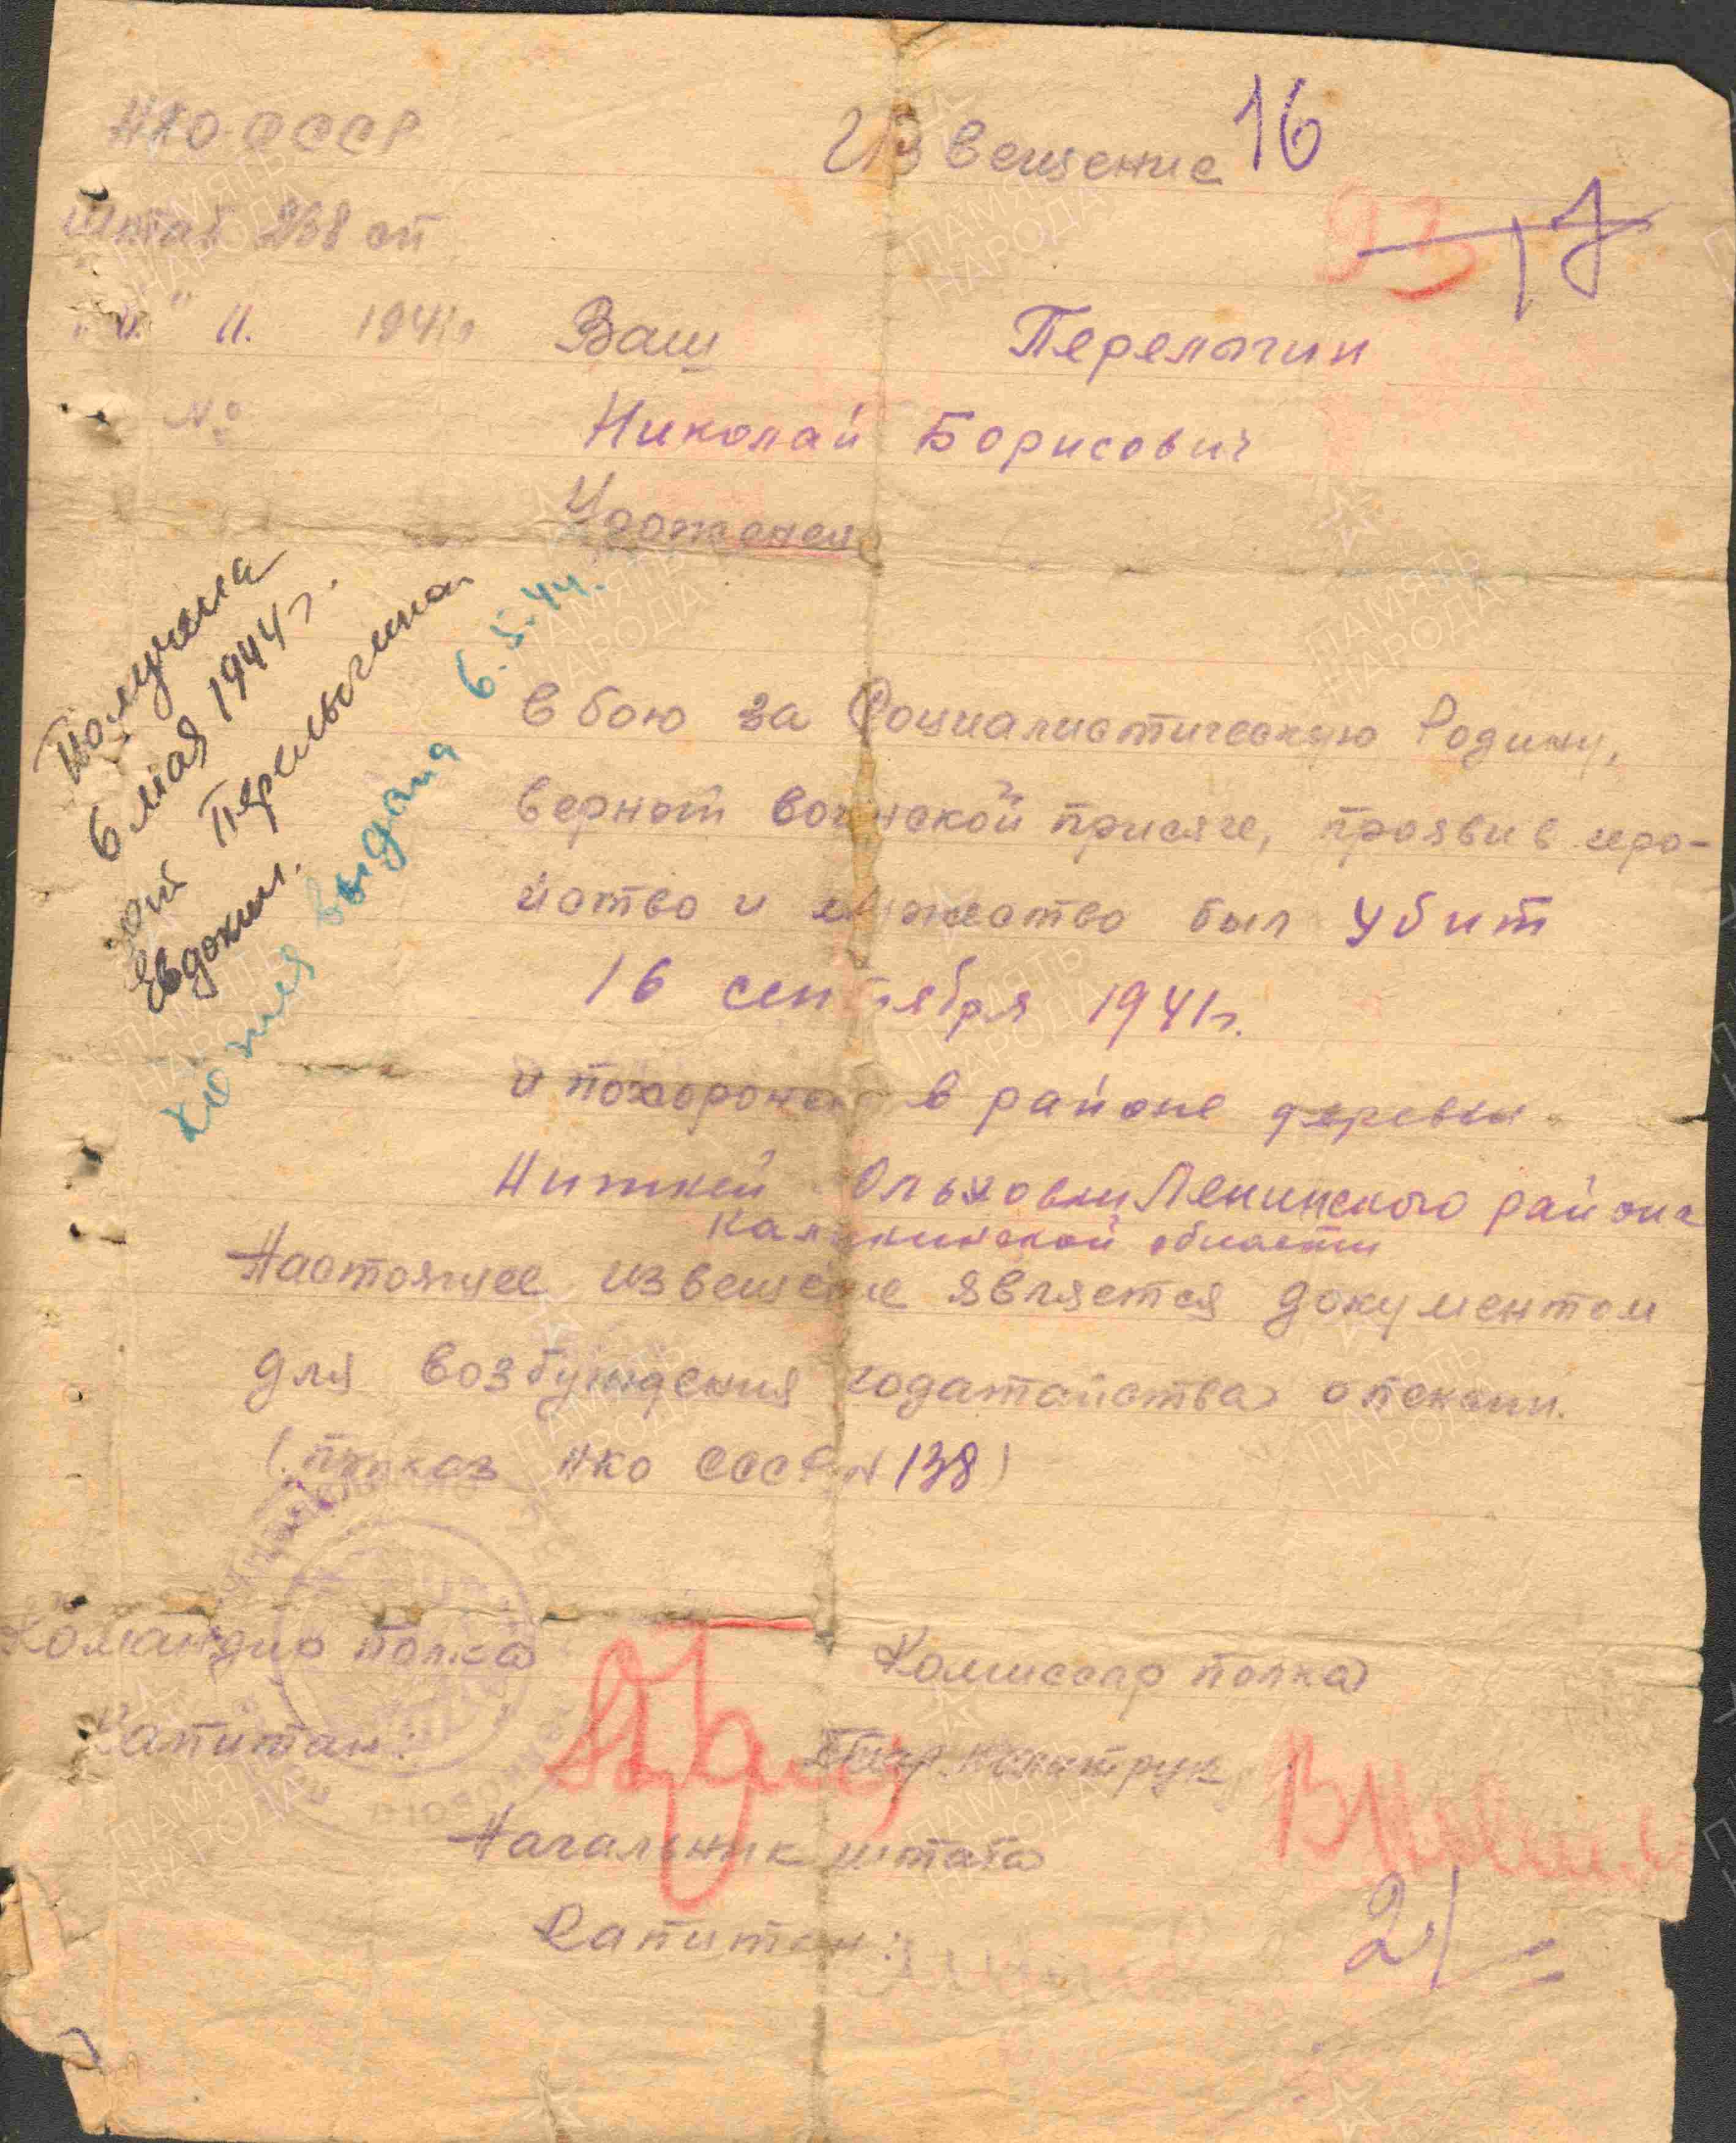 НКО СССР
Извещение 16
Штаб 268 сп
93 17
" 11. 1941г
Ваш Перелыгин
№
Николай Борисович
Уроженец
Получила
6 мая 1944 г.
Перелыгина
Евдоким.
Копия выдана 6.5.44.
в бою за Социалистическую Родину,
верный воинской присяге, проявив геро-
йство и мужество был убит
16 сентября 1941г.
и похоронен в районе деревни
Нижней Ольховки Ленинского района
Калининской области
Настоящее извещение является документом
для возбуждения ходатайства о пенсии.
(приказ НКО СССР N 138)
Командир полка Комиссар полка
Капитан: Стар. политрук
Начальник штаба
Капитан:
21